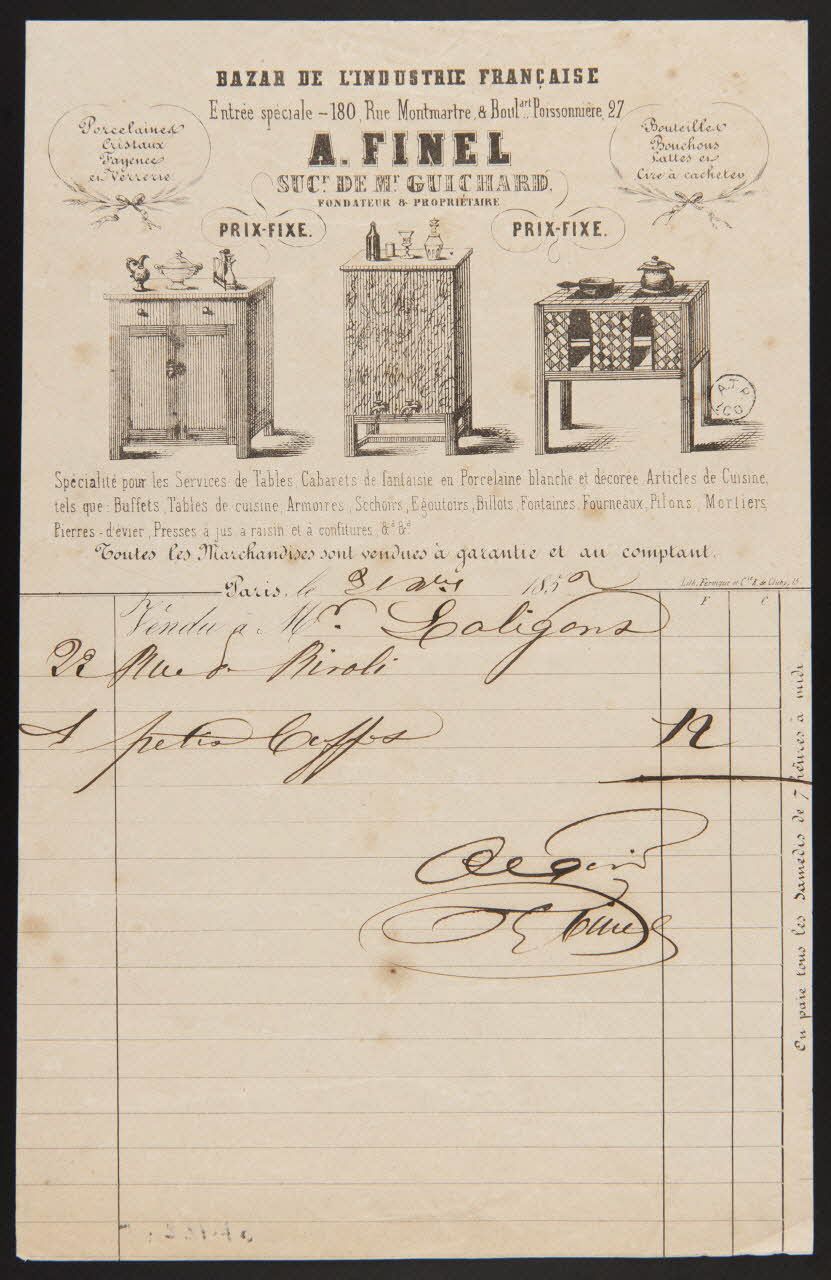 BAZAR DE L'INDUSTRIE FRANÇAISE
Entrée spéciale – 180, Rue Montmartre, & Boul.art Poissonnière, 27
A. FINEL
SUCr. DE Mr. GUICHARD.
FONDATEUR & PROPRIÉTAIRE
Porcelaines
Cristaux
Fayence
et Verrerie
Bouteilles
Bouchons
Lattes et
Cire à cacheter
PRIX-FIXE.
PRIX-FIXE.
A.T.P.
Spécialité pour les Services de Tables, Cabarets de fantaisie en Porcelaine blanche et décorée, Articles de Cuisine,
tels que: Buffets, Tables de cuisine, Armoires, Séchoirs, Egoutoirs, Billots, Fontaines, Fourneaux, Pilons, Mortiers,
Pierres-d'évier, Presses à jus à raisin et à confitures, &a &a
Toutes les Marchandises sont vendues à garantie et au comptant.
Paris, le 31 1852
F C
Vendu à Mr.
22 Rue de Rivoli
1 petit 12
On paie tous les Samedis de 7 heures à midi